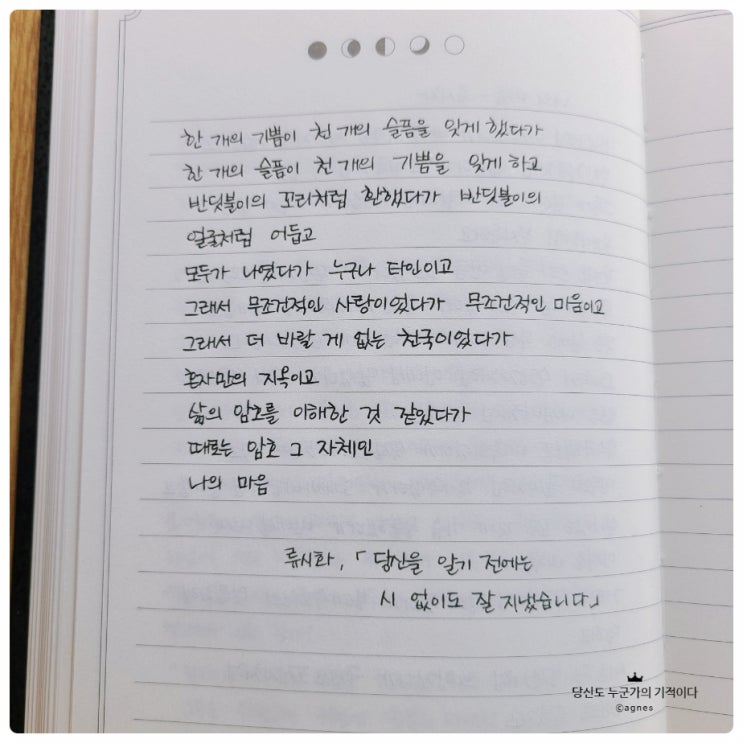 한 개의 기쁨이 천 개의 슬픔을 잊게 했다가
한 개의 슬픔이 천 개의 기쁨을 잊게 하고
반딧불이의 꼬리처럼 환했다가 반딧불이의
얼굴처럼 어둡고
모두가 나였다가 누구나 타인이고
그래서 무조건적인 사랑이었다가 무조건적인 마음이고
그래서 더 바랄 게 없는 천국이었다가
혼자만의 지옥이고
삶의 암호를 이해한 것 같았다가
때로는 암호 그 자체인
나의 마음
류시화, 「당신을 알기 전에는
시 없이도 잘 지냈습니다」
당신도 누군가의 기적이다
©agnes